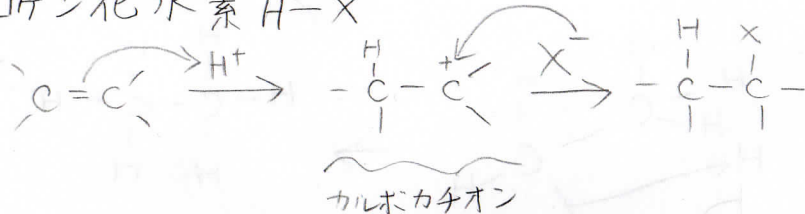 ロゲン化水素 H-X
C=C H⁺ → H -C-C⁺ X⁻ → H X -C-C-
カルボカチオン